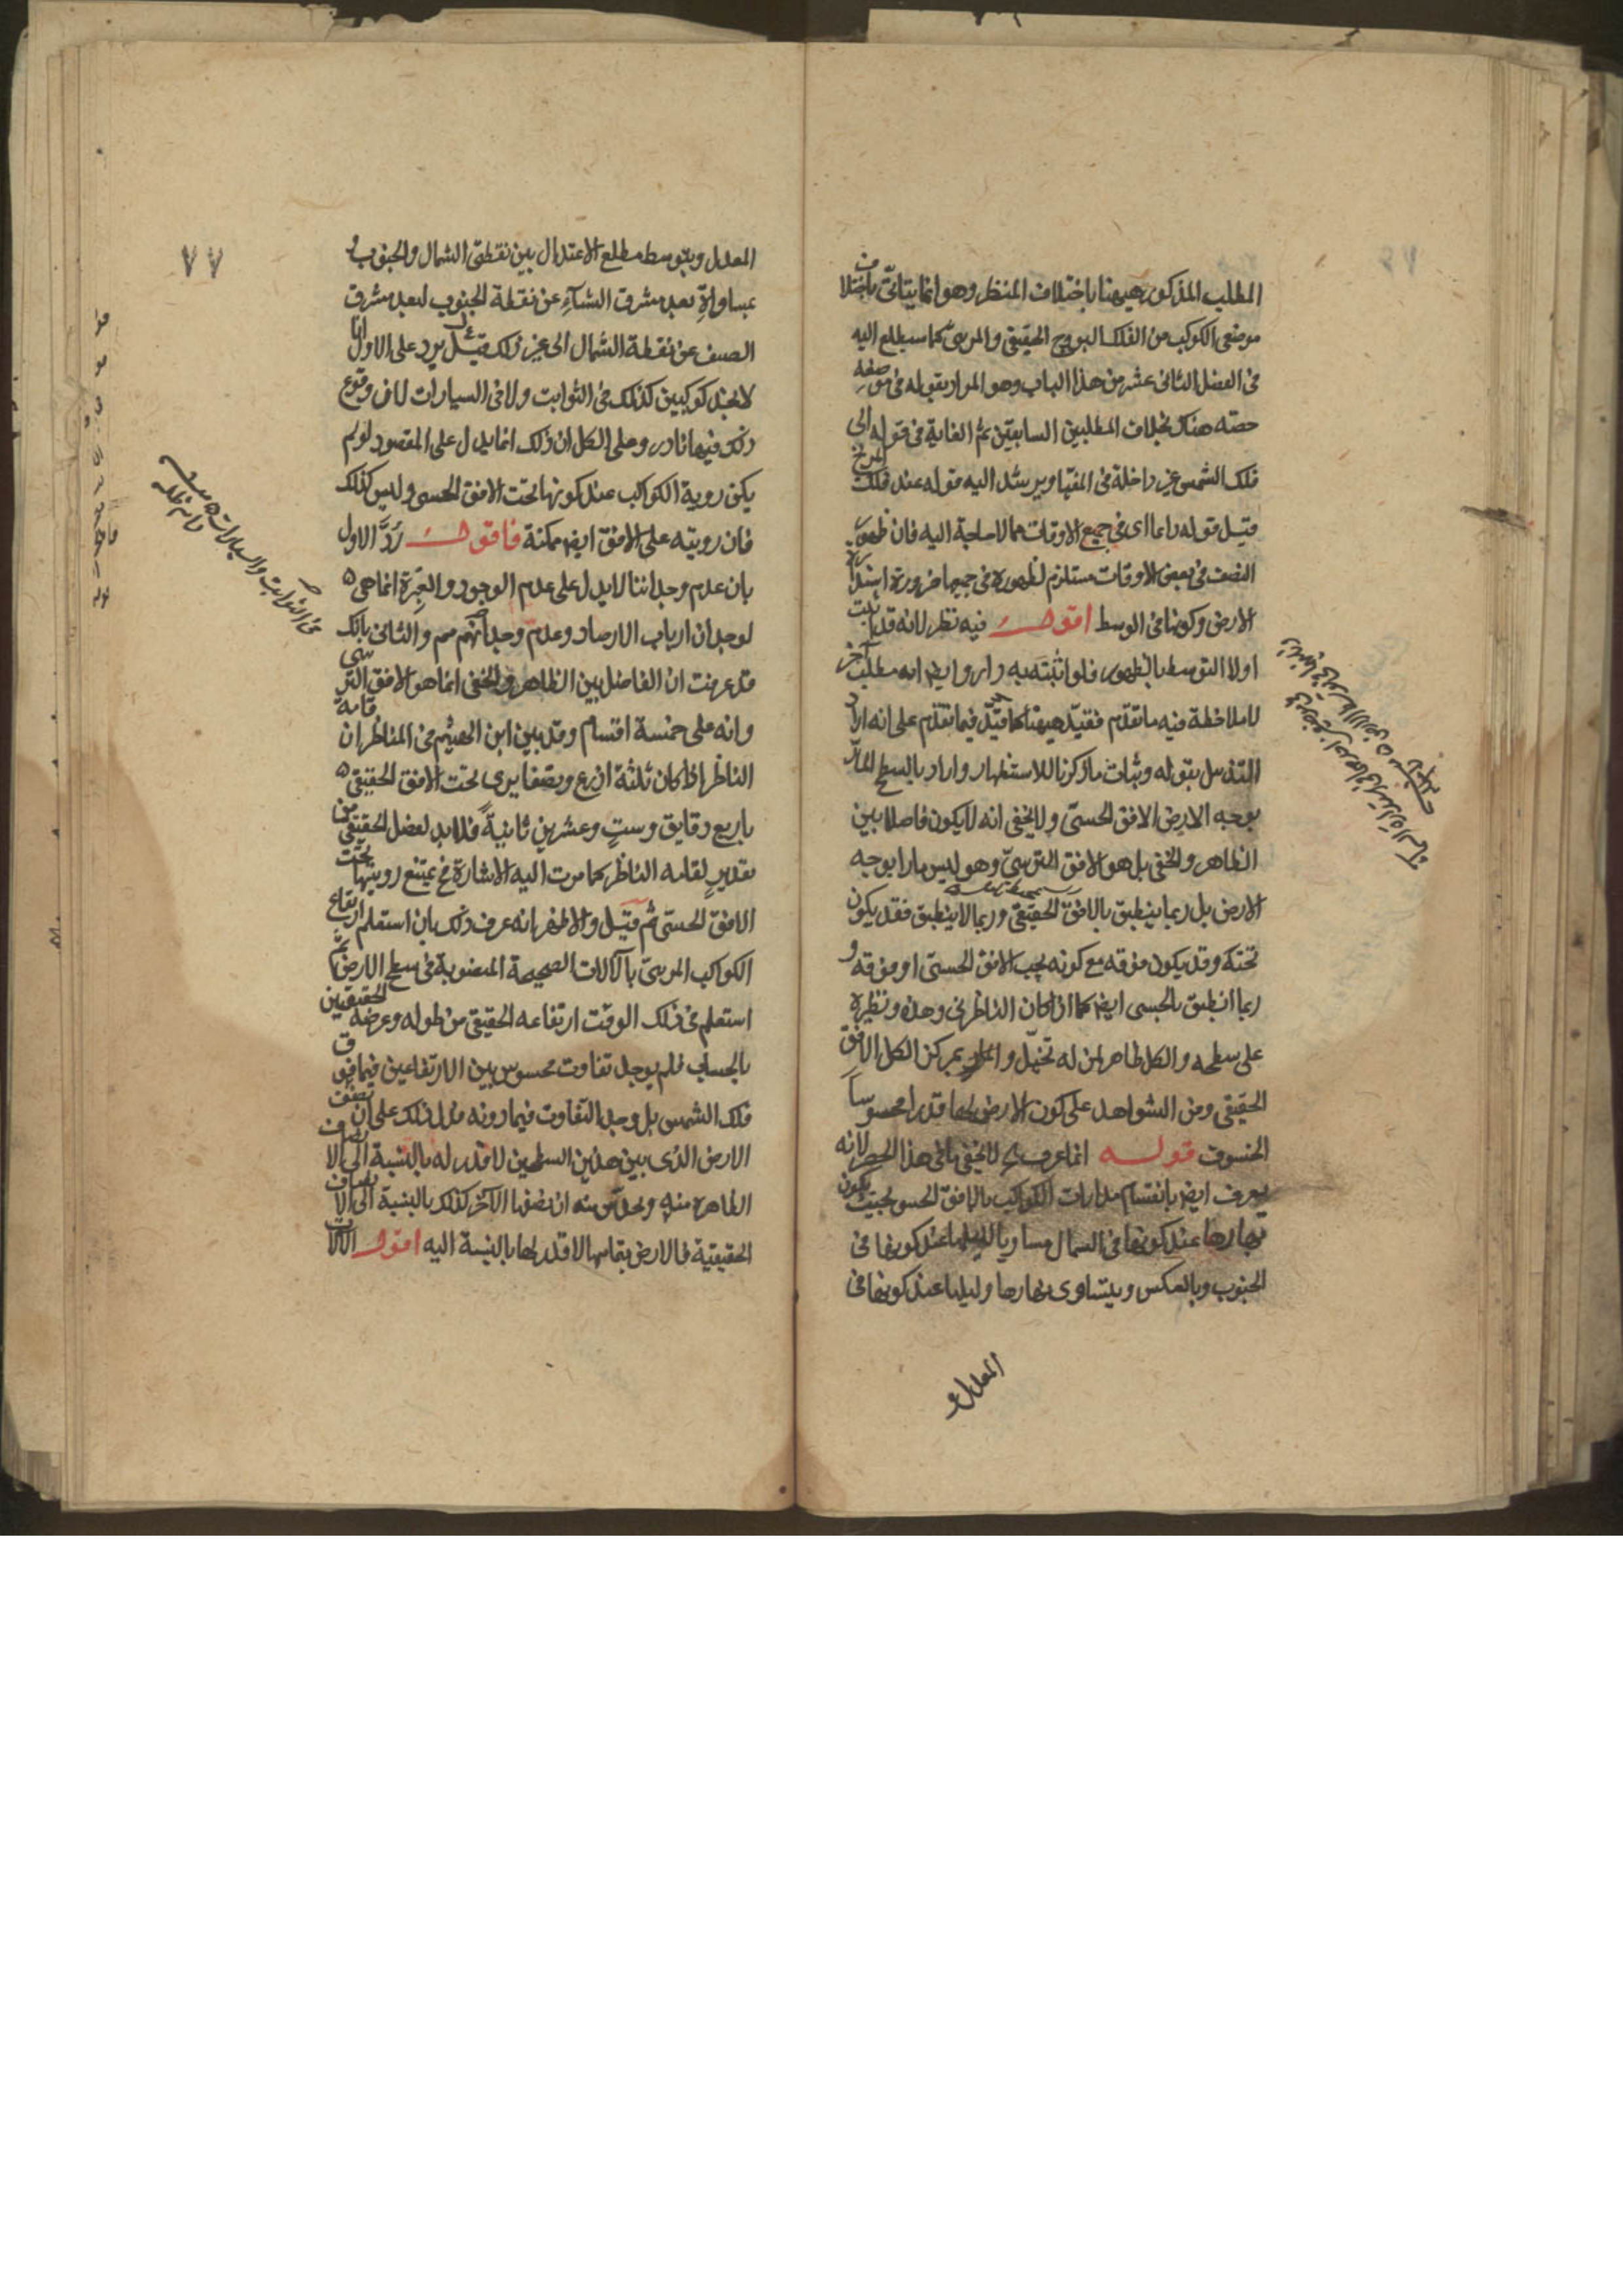 المطلب المذكور ههنا باختلاف المنظر وهو انما يتأتى باختلاف
موضعى الكوكب من الفلك البروج الحقيقى والمرئى كما سيطلع اليه
فى الفصل الثانى عشر من هذا الباب وهو المراد بقوله فى موضعه
حصته هناك بخلاف المطلبين السابقين ثم الغاية فى قوله الى
فلك الشمس غير داخلة فى المغيا ويرشد اليه قوله عند فلك المريخ
قيل قوله دائما اى فى جميع الاوقات مما لا حاجة اليه فان ظهور
النصف فى بعض الاوقات مستلزم لظهوره فى جميعها ضرورة استدارة
الارض وكونها فى الوسط اقول فيه نظر لانه قد اثبت
اولا التوسط بالظهور فلو اثبته به دار وايض انه مطلب آخر
لا ملاحظة فيه ما تقدم فقيد ههنا كما قيد فيما تقدم على انه اراد
بقوله وثبات ما ذكرنا للاستظهار واراد بالسطح المار
بوجه الارض الافق الحسى ولا يخفى انه لا يكون فاصلا بين
الظاهر والخفى بل هو الافق الترسى وهو ليس مارا بوجه
الارض بل ربما ينطبق بالافق الحقيقى وربما لا ينطبق فقد يكون
تحته وقد يكون فوقه مع كونه بجنب الافق الحسى او فوقه و
ربما انطبق بالحسى ايض كما اذا كان الناظر فى وهدة ونظره
على سطحه والكل ظاهر لمن له تخيل والمار بمركز الكل الافق
الحقيقى ومن الشواهد على كون الارض لها قدرا محسوسا
الخسوف قوله انما عرف الخ لا يخفى ما فى هذا الحصر لانه
يعرف ايض بانقسام مدارات الكواكب بالافق الحسى بحيث يكون
نهارها عند كونها فى الشمال مساويا لليلها عند كونها فى
الجنوب وبالعكس ويتساوى نهارها وليلها عند كونها فى
المعدل و
٧٧
المعدل وبتوسط مطلع الاعتدال بين نقطتى الشمال والجنوب و
بمساواة بعد مشرق الشتاء عن نقطة الجنوب لبعد مشرق
الصيف عن نقطة الشمال الى غير ذلك قيل يرد على الاول انا
لا نجد كوكبين كذلك فى الثوابت ولا فى السيارات لان وقوع
ذلك فيها نادر وعلى الكل ان ذلك انما يدل على المقصود لو لم
يكن روية الكواكب عند كونها تحت الافق الحسى وليس كذلك
فان رويته على الافق ايض ممكنة فاقول رد الاول
بان عدم وجداننا لا يدل على عدم الوجود والعبرة انما هى
لوجدان ارباب الارصاد وعدم وجدانهم مم والثانى بانك
قد عرفت ان الفاصل بين الظاهر والخفى انما هو الافق الترسى
وانه على خمسة اقسام وقد بين ابن الهيثم فى المناظر ان قامة
الناظر اذا كان ثلثة اذرع ونصفا يرى تحت الافق الحقيقى
باربع دقايق وست وعشرين ثانية فلا بد لفصل الحقيقى من
تقدير لقامة الناظر كما مرت اليه الاشارة فح يمتنع رويتها تحت
الافق الحسى ثم قيل والاظهر انه عرف ذلك بان استعلم ارتفاع
الكواكب المرئى بالآلات الصحيحة المنصوبة فى سطح الارض ثم
استعلم فى ذلك الوقت ارتفاعه الحقيقى من طوله وعرضه الحقيقيين
بالحساب فلم يوجد تفاوت محسوس بين الارتفاعين فيما فوق
فلك الشمس بل وجد التفاوت فيما دونه فدل ذلك على ان نصف
الارض الذى بين هذين السطحين لا قدر له بالنسبة الى الانصاف
الظاهرة منه ويحدس منه ان نصفها الآخر كذلك بالنسبة الى الانصاف
الحقيقية فالارض بتمامها لا قدر لها بالنسبة اليه اقول الآلات
فى الثوابت والسيارات